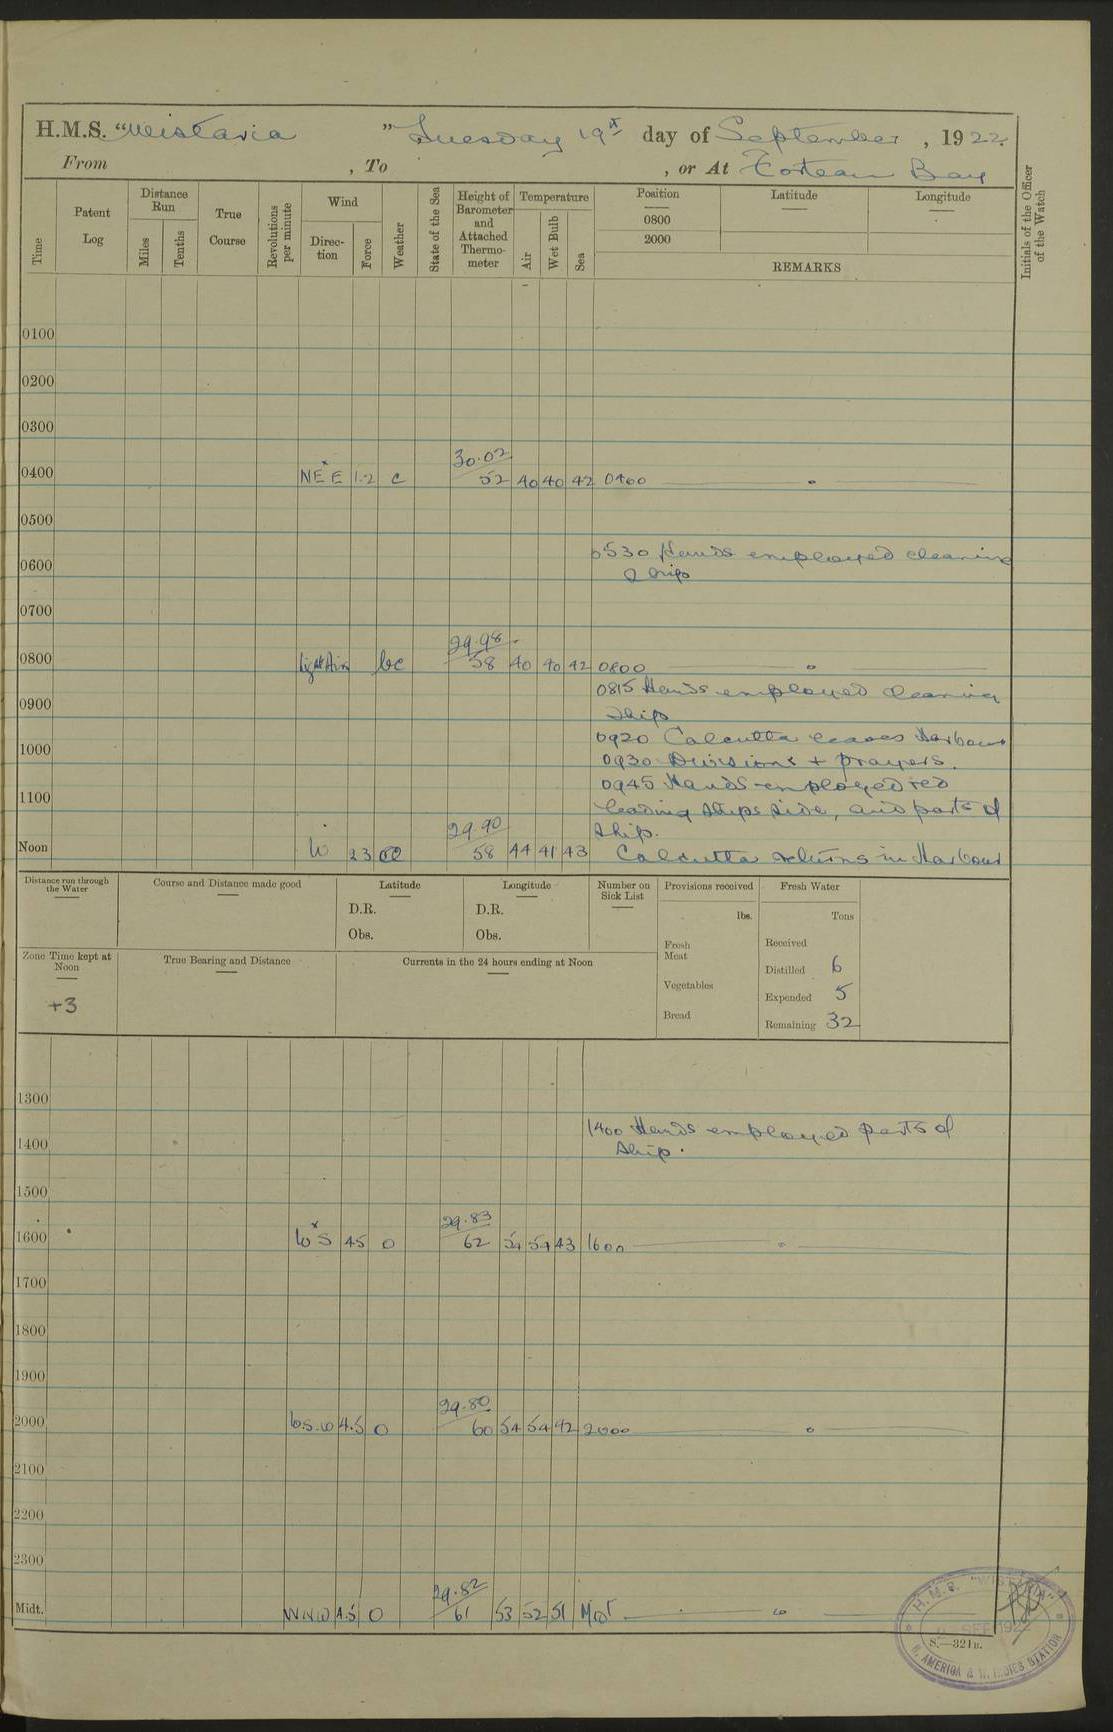 H.M.S. "Wistaria" Tuesday 19th day of September, 1922.
From , To , or At Forteau Bay
Time
Patent Log
Distance Run
Miles
Tenths
True Course
Revolutions per minute
Wind
Direc-tion
Force
Weather
State of the Sea
Height of Barometer and Attached Thermo-meter
Temperature
Air
Wet Bulb
Sea
Position
0800
2000
Latitude
Longitude
REMARKS
Initials of the Officer of the Watch
0100
0200
0300
30.02
0400 NExE 1.2 c 52 40 40 42 0400
0500
0530 Hands employed cleaning
0600 Ship
0700
29.98
0800 Light Airs bc 58 40 40 42 0800
0815 Hands employed cleaning
0900 Ship
0920 Calcutta leaves Harbour
1000 0930 Divisions + prayers.
0945 Hands employed red
1100 leading ships side, and parts of
29.90 Ship.
Noon W 23 58 44 41 43 Calcutta returns in Harbour
Distance run through the Water
Course and Distance made good
Latitude
D.R.
Obs.
Longitude
D.R.
Obs.
Number on Sick List
Provisions received
lbs.
Fresh Meat
Vegetables
Bread
Fresh Water
Tons
Received
Distilled 6
Expended 5
Remaining 32
Zone Time kept at Noon
+3
True Bearing and Distance
Currents in the 24 hours ending at Noon
1300
1400 Hands employed parts of
1400 Ship.
1500
29.83
1600 WxS 45 o 62 54 54 43 1600
1700
1800
1900
29.80
2000 W.S.W 4.5 o 60 54 54 42 2000
2100
2200
2300
29.82
Midt. WNW 4.5 o 61 53 52 51 Midt
H.M.S. "WISTARIA"
SEP 1922
S.—321B.
N. AMERICA & W. INDIES STATION